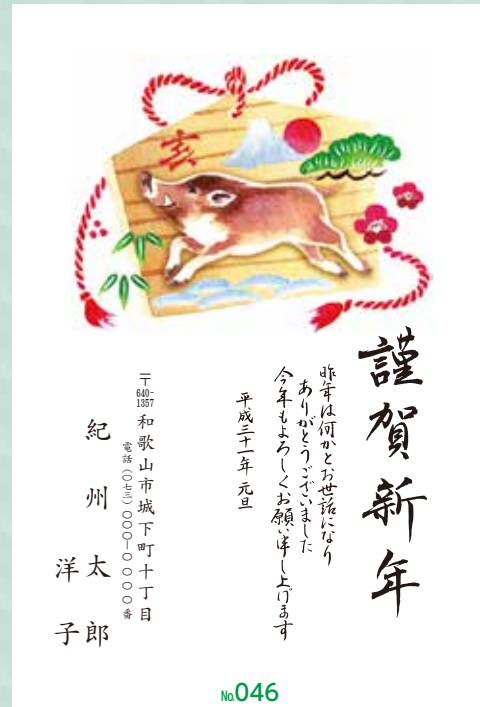 亥
謹賀新年
昨年は何かとお世話になり
ありがとうございました
今年もよろしくお願い申し上げます
平成三十一年 元旦
〒640-1357 和歌山市城下町十丁目
電話(〇七三)〇〇〇ー〇〇〇〇番
紀州太郎
洋子
№046